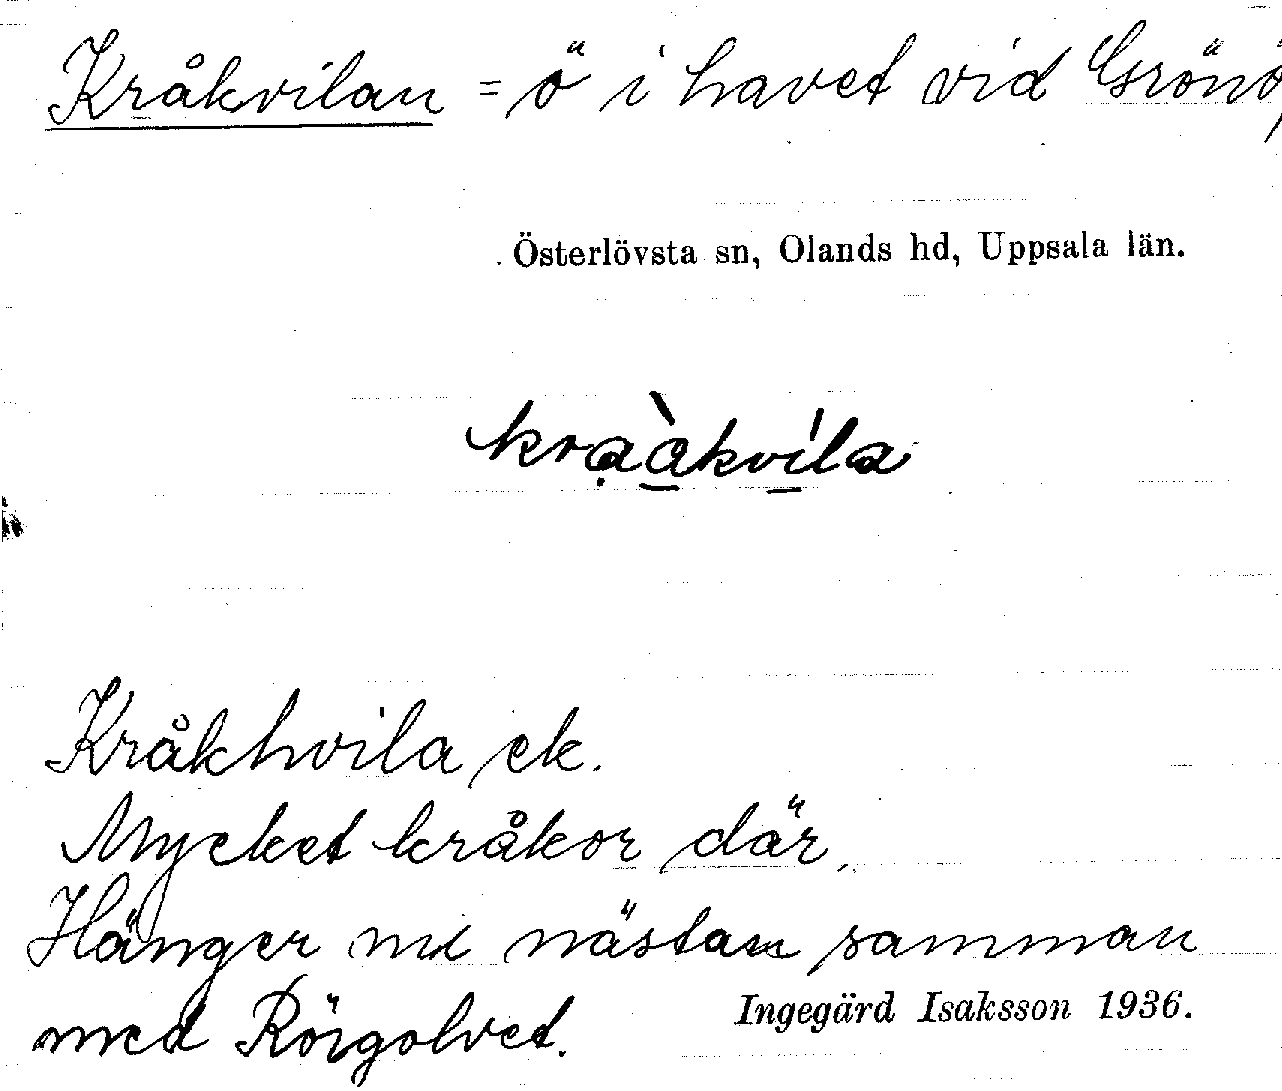 Kråkvilan = ö i havet vid Grönö,
Österlövsta sn, Olands hd, Uppsala län.
kraàkvíla
Kråkhvila ek.
Mycket kråkor där.
Hänger nu nästan samman
med Rörgolvet.
Ingegärd Isaksson 1936.